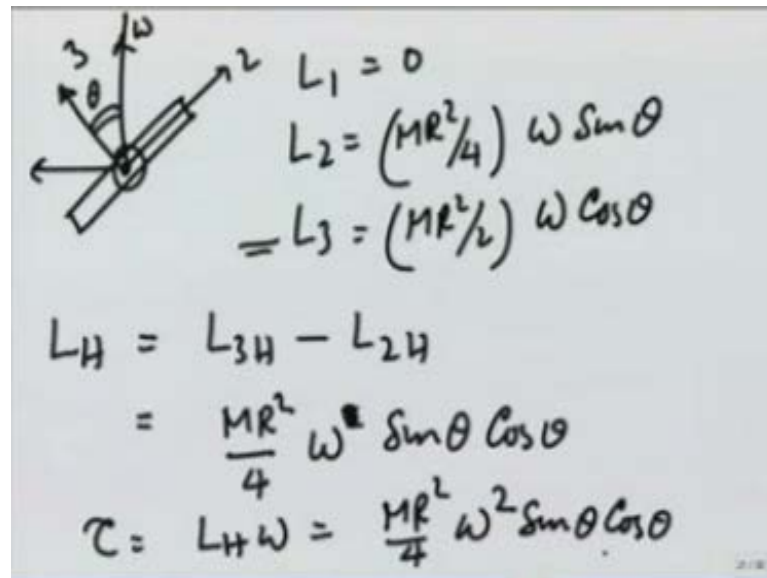 3 ω
θ 2
L₁ = 0
L₂ = (MR²/4) ω Sinθ
L₃ = (MR²/2) ω Cosθ
L_H = L₃H − L₂H
= MR²/4 ω Sinθ Cosθ
τ = L_H ω = MR²/4 ω² Sinθ Cosθ